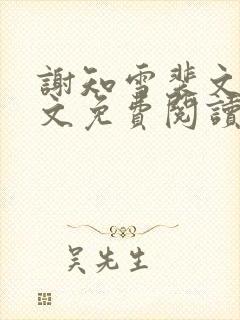 謝知雪裴文
文免費閱讀
吴先生